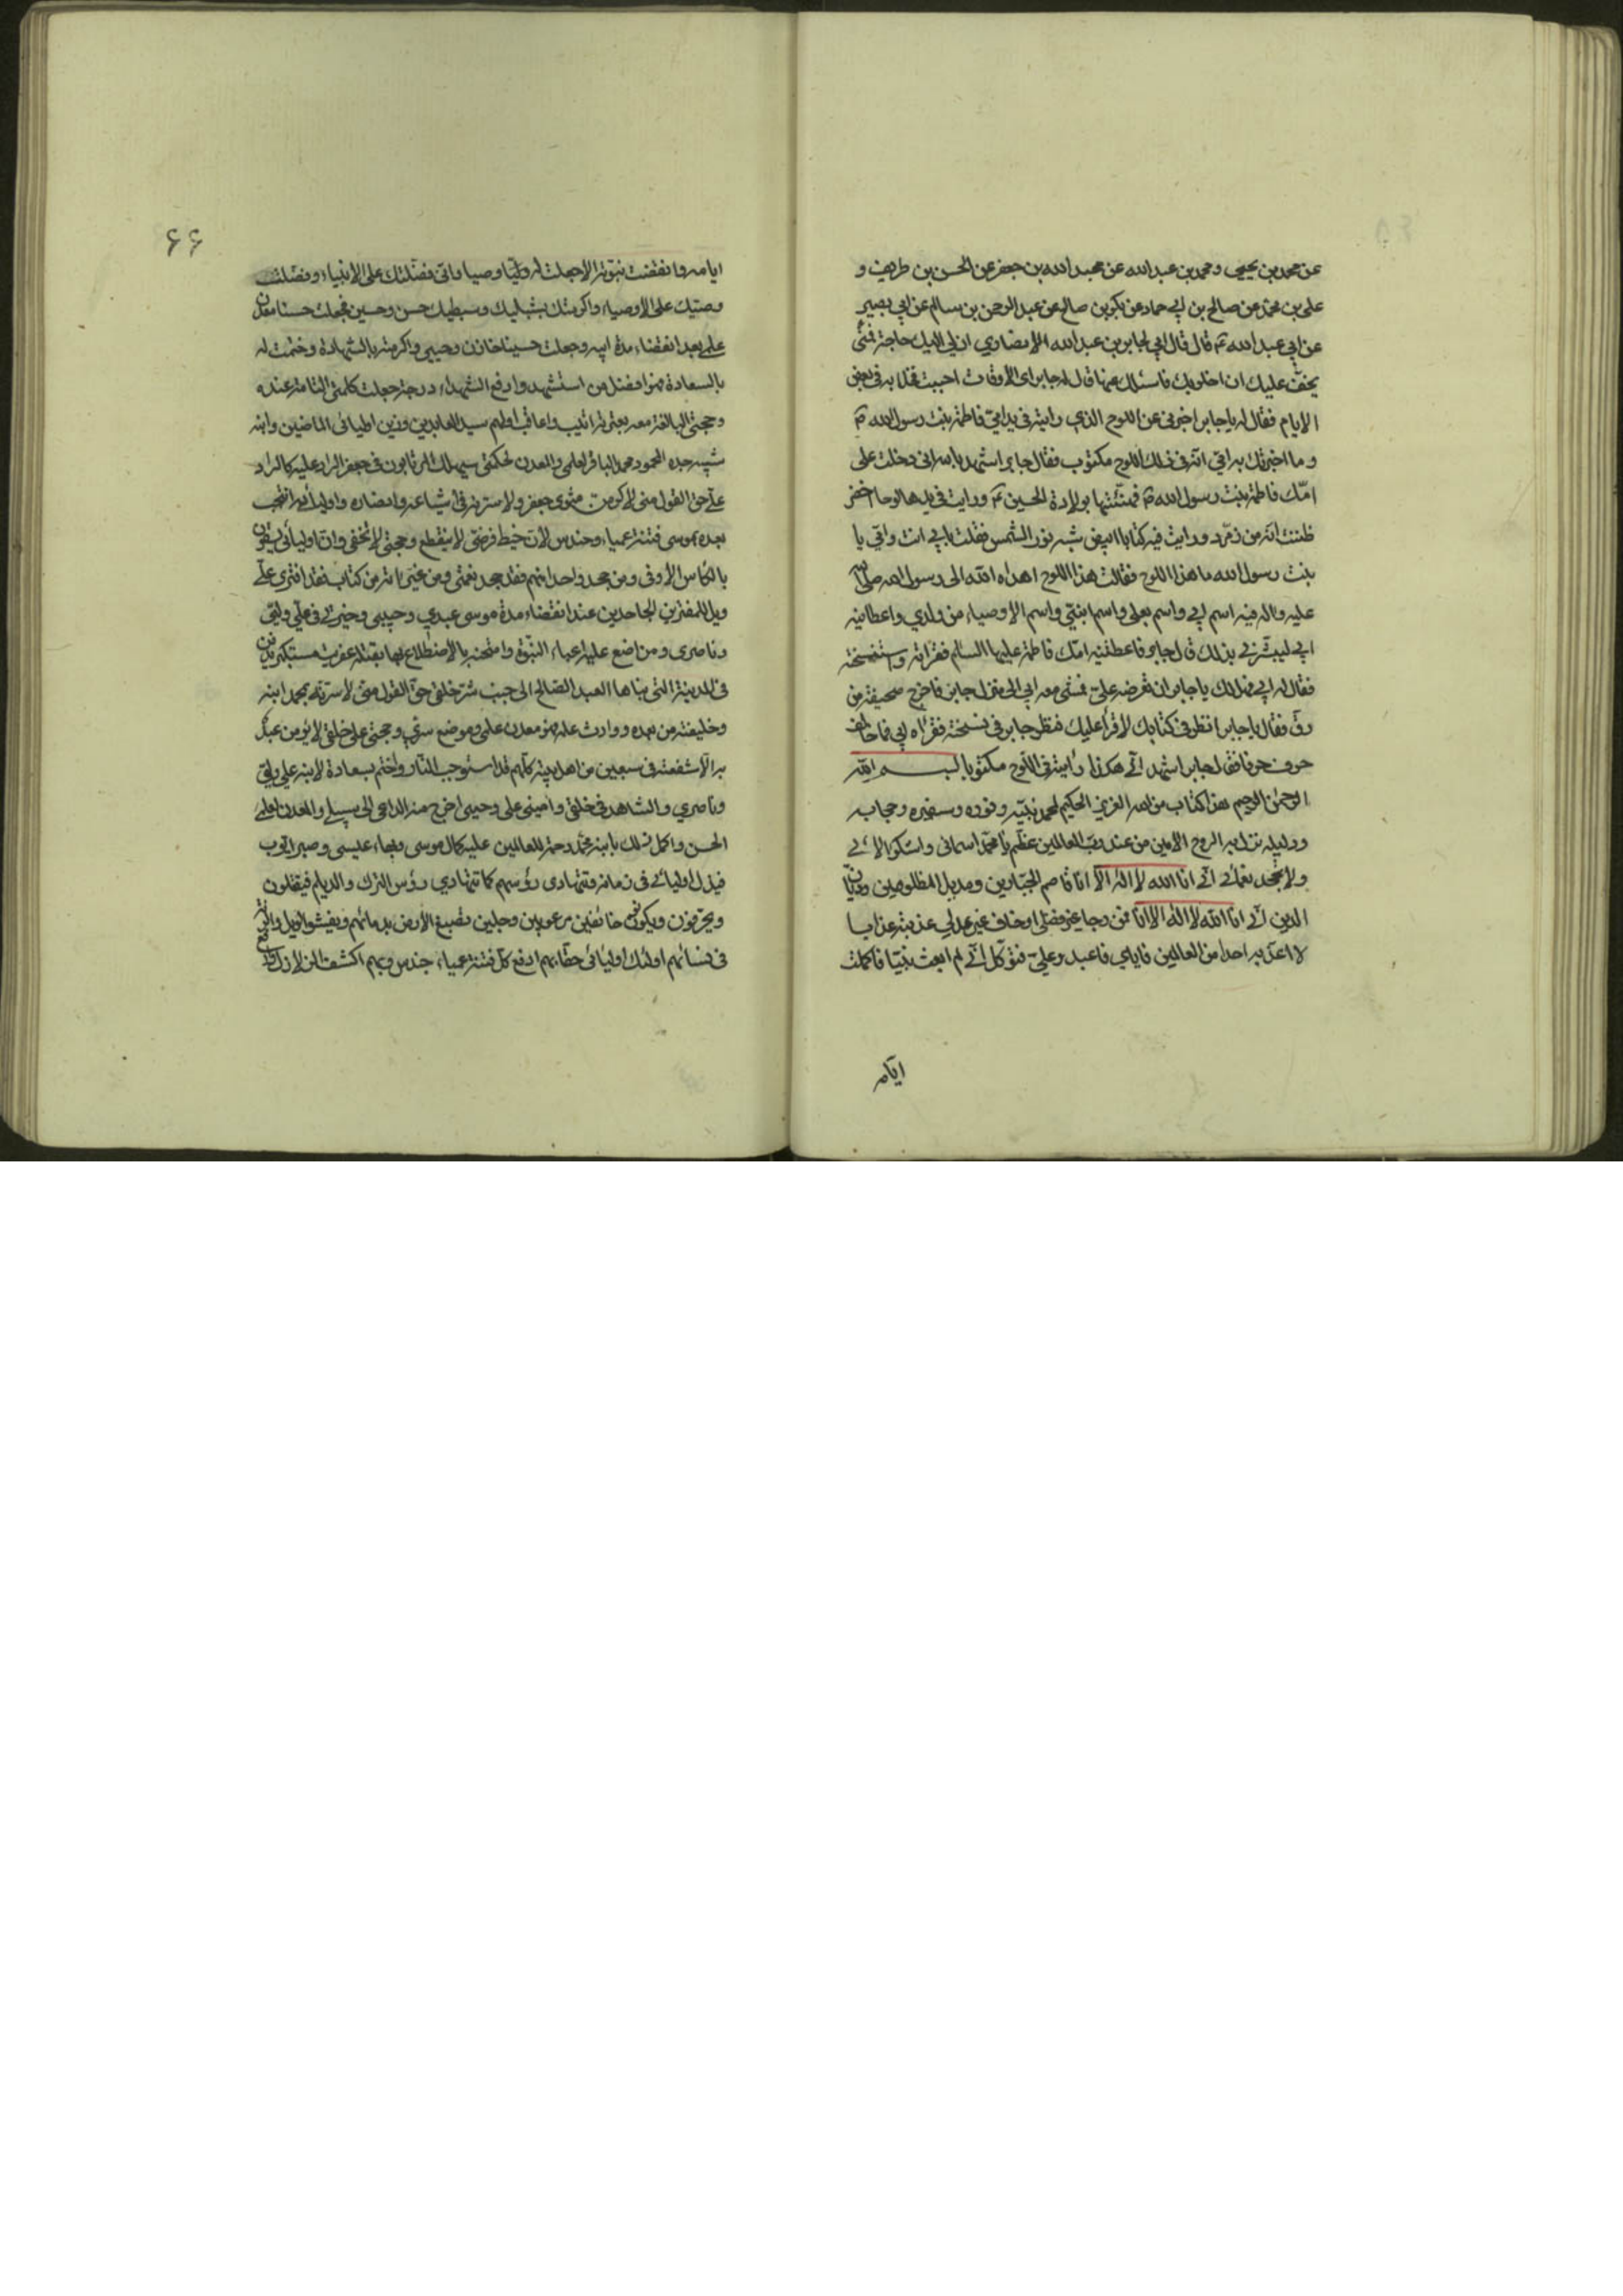 عن محمد بن يحيى ومحمد بن عبدالله عن عبدالله بن جعفر عن الحسن بن ظريف و
على بن محمد عن صالح بن ابي حماد عن بكر بن صالح عن عبدالرحمن بن سالم عن ابي بصير
عن ابي عبدالله ع قال قال ابي لجابر بن عبدالله الانصاري ان لي اليك حاجة فمتى
يخفّ عليك ان اخلو بك فاسئلك عنها قال له جابر اى الاوقات احببت فخلا به فى بعض
الايام فقال له يا جابر اخبرنى عن اللوح الذي رايته فى يد امّي فاطمة بنت رسول الله ص
و ما اخبرتك به امّي انّه فى ذلك اللوح مكتوب فقال جابر اشهد بالله انى دخلت على
امّك فاطمة بنت رسول الله ص فهنّئتها بولادة الحسين ع ورايت فى يدها لوحا اخضر
ظننت انّه من زمرّد ورايت فيه كتابا ابيض شبه نور الشمس فقلت بابي انت وامّي يا
بنت رسول الله ما هذا اللوح فقالت هذا اللوح اهداه الله الى رسول الله صلى الله
عليه واله فيه اسم ابي واسم بعلى واسم ابنيّ واسم الاوصياء من ولدي واعطانيه
ابي ليبشّرنى بذلك قال جابر فاعطتنيه امّك فاطمة عليها السلام فقراته واستنسخته
فقال له ابي فهل لك يا جابر ان تعرضه عليّ فمشى معه ابي الى منزل جابر فاخرج صحيفة من
رقّ فقال يا جابر انظر فى كتابك لاقرأ عليك فنظر جابر فى نسخته فقرأه ابي فما خالف
حرف حرفا فقال جابر اشهد انّي هكذا رأيته فى اللوح مكتوبا بسم الله
الرحمن الرحيم هذا كتاب من الله العزيز الحكيم لمحمد نبيّه ونوره وسفيره وحجابه
ودليله نزل به الروح الامين من عند ربّ العالمين عظّم يا محمّد اسمائى واشكر الائى
ولا تجحد نعمائى انّي انا الله لا اله الا انا قاصم الجبّارين ومديل المظلومين وديّان
الدين انّي انا الله لا اله الا انا فمن رجا غير فضلى او خاف غير عدلي عذبته عذابا
لا اعذّبه احدا من العالمين فاياي فاعبد وعليّ فتوكّل انّي لم ابعث نبيّا فاكملت
ايّامه
۶۶
ايامه وانقضت نبوّته الا جعلت له وصيا وانى فضّلتك على الانبياء وفضّلت
وصيّك على الاوصياء واكرمتك بشبليك وسبطيك حسن وحسين فجعلت حسنا معدن
علمى بعد انقضاء مدة ابيه وجعلت حسينا خازن وحيى واكرمته بالشهادة وختمت له
بالسعادة فهو افضل من استشهد وارفع الشهداء درجة جعلت كلمتى التامة عنده
وحجتى البالغة معه بعترته اثيب واعاقب اولهم سيد العابدين وزين اوليائى الماضين وابنه
شبيه جده المحمود محمد الباقر لعلمى والمعدن لحكمتى سيهلك المرتابون فى جعفر الراد عليه كالراد
عليّ حق القول منى لاكرمن مثوى جعفر ولاسرنه فى اشياعه وانصاره واوليائه انتجبت
بعده بموسى فتنة عمياء وحندس لان خيط فرضى لا ينقطع وحجتى لا تخفى وان اوليائى يسقون
بالكأس الاوفى ومن جحد واحدا منهم فقد جحد نعمتى ومن غيّر اية من كتابى فقد افترى عليّ
ويل للمفترين الجاحدين عند انقضاء مدة موسى عبدي وحبيبى وخيرتى فى عليّ وليّي
وناصرى ومن اضع عليه اعباء النبوّة وامتحنه بالاضطلاع بها يقتله عفريت مستكبر يدفن
فى المدينة التى بناها العبد الصالح الى جنب شرّ خلقى حقّ القول منى لاسرّنه بمحمد ابنه
وخليفته من بعده ووارث علمه فهو معدن علمى وموضع سرّي وحجتى على خلقى لا يؤمن عبد
به الّا شفعته فى سبعين من اهل بيته كلّهم قد استوجب النار واختم بسعادة لابنه على وليّي
وناصري والشاهد فى خلقى وامينى على وحيى اخرج منه الداعى الى سبيلى والمعدن لعلمى
الحسن واكمل ذلك بابنه محمّد رحمة للعالمين عليه كمال موسى وبهاء عيسى وصبر ايّوب
فيذل اوليائى فى زمانه وتتهادى رؤسهم كما تتهادي رؤس الترك والديلم فيقتلون
ويحرقون ويكونون خائفين مرعوبين وجلين تصبغ الارض بدمائهم ويفشو الويل والرنّة
فى نسائهم اولئك اوليائى حقا بهم ادفع كلّ فتنة عمياء حندس وبهم اكشف الزلازل وادفع